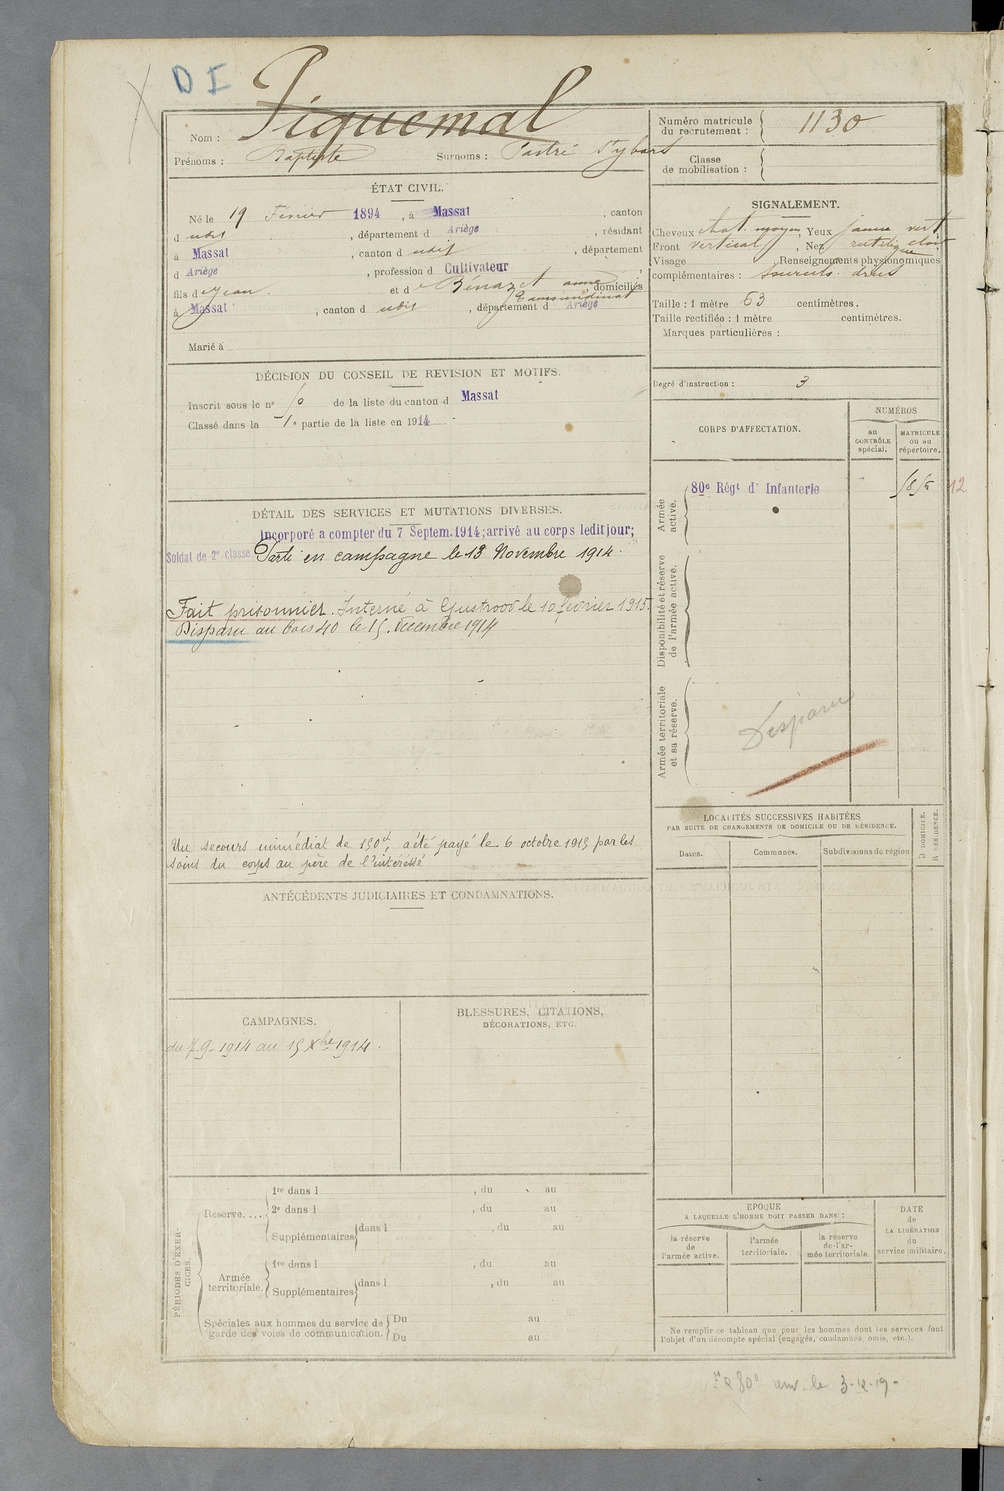 D I
Piquemal
Nom :
Prénoms : Baptiste Surnoms :
Numéro matricule
du recrutement : 1130
Classe
de mobilisation :
ÉTAT CIVIL.
Né le 19 Février 1894, à Massat, canton
d udit, département d Ariège, résidant
à Massat, canton d udit, département
d Ariège, profession d Cultivateur
fils de Jean et de Bénazet anne domiciliés
à Massat, canton d udit, département d Ariège
Marié à
SIGNALEMENT.
Cheveux chat. moyen, Yeux jaune vert
Front vertical, Nez rectiligne
Visage Renseignements physionomiques
complémentaires : sourcils droits
Taille : 1 mètre 63 centimètres.
Taille rectifiée : 1 mètre centimètres.
Marques particulières :
Degré d'instruction : 3
DÉCISION DU CONSEIL DE REVISION ET MOTIFS.
Inscrit sous le nº de la liste du canton d Massat
Classé dans la 1e partie de la liste en 1914
CORPS D'AFFECTATION.
NUMÉROS
au
CONTRÔLE
spécial.
MATRICULE
ou au
répertoire.
Armée
active.
80e Régt d' Infanterie
12
Disponibilité et réserve
de l'armée active.
Armée territoriale
et sa réserve.
Disparu
DÉTAIL DES SERVICES ET MUTATIONS DIVERSES.
Incorporé a compter du 7 Septem. 1914; arrivé au corps ledit jour;
Soldat de 2e classe Parti en campagne le 13 Novembre 1914.
Fait prisonnier. Interné à Gustroow le 10 février 1915.
Disparu au bois 40 le 15 Décembre 1914
Un secours immédiat de 150f, a été payé le 6 octobre 1915 par les
soins du corps au père de l'intéressé
LOCALITÉS SUCCESSIVES HABITÉES
PAR SUITE DE CHANGEMENTS DE DOMICILE OU DE RÉSIDENCE.
Dates.
Communes.
Subdivisions de région
D DOMICILE.
R RÉSIDENCE.
ANTÉCÉDENTS JUDICIAIRES ET CONDAMNATIONS.
CAMPAGNES.
du 7-9-1914 au 15 Xbre 1914.
BLESSURES, CITATIONS,
DÉCORATIONS, ETC.
PÉRIODES D'EXERCICES.
Réserve....
1re dans l , du au
2e dans l , du au
Supplémentaires dans l , du au
Armée
territoriale.
1re dans l , du au
Supplémentaires dans l , du au
Spéciales aux hommes du service de
garde des voies de communication.
Du au
Du au
EPOQUE
A LAQUELLE L'HOMME DOIT PASSER DANS :
la réserve
de
l'armée active.
l'armée
territoriale.
la réserve
de l'ar-
mée territoriale.
DATE
de
LA LIBÉRATION
du
service militaire.
Ne remplir ce tableau que pour les hommes dont les services font
l'objet d'un décompte spécial (engagés, condamnés, omis, etc.).
le 3-12-19